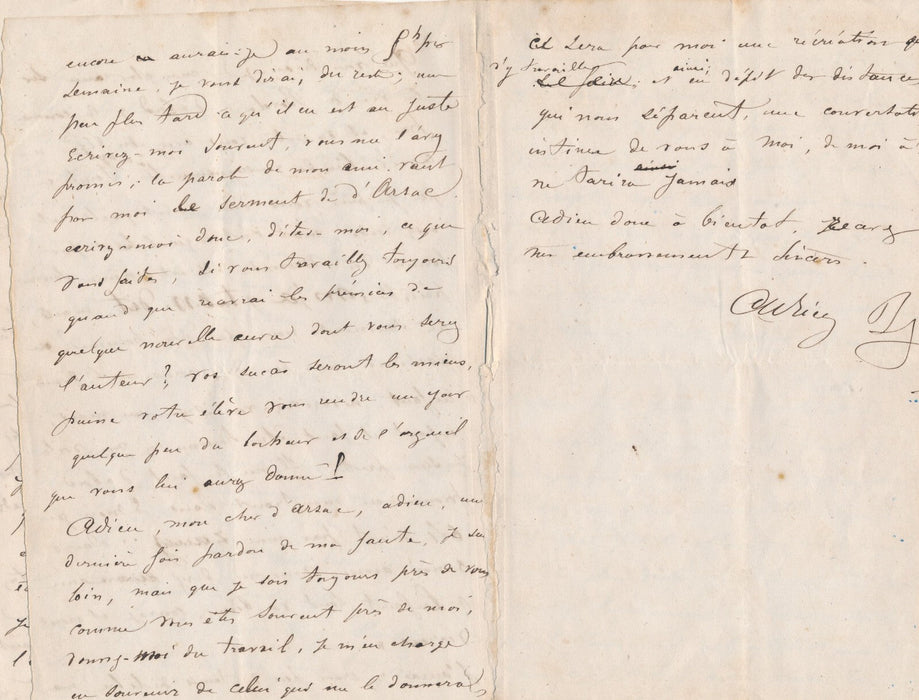 encore aurai-je au moins
semaine. je vous dirai, du reste, un
peu plus tard ce qu'il en est au juste
Ecrivez-moi souvent, vous me l'avez
promis; la parole de mon ami vaut
pour moi le serment de d'Arsac
ecrivez-moi donc, dites-moi, ce que
vous faites, si vous travaillez toujours
quand que recevrai les prémices de
quelque nouvelle œuvre dont vous serez
l'auteur? vos succès seront les miens,
puisse votre élève vous rendre un jour
quelque peu du bonheur et de l'orgueil
que vous lui aurez donné!
Adieu, mon cher d'Arsac, adieu, une
dernière fois pardon de ma faute, je suis
loin, mais que je sois toujours près de vous
comme vous êtes souvent près de moi,
donnez-moi du travail, je m'en charge
en souvenir de celui qui me le donnera,
ce sera pour moi une récréation que
d'y travailler
et ainsi, en dépit des distances
qui nous séparent, une conversation
intime de vous à moi, de moi à
ne tarira jamais
Adieu donc à bientot, recevez
mes embrassements sincères.